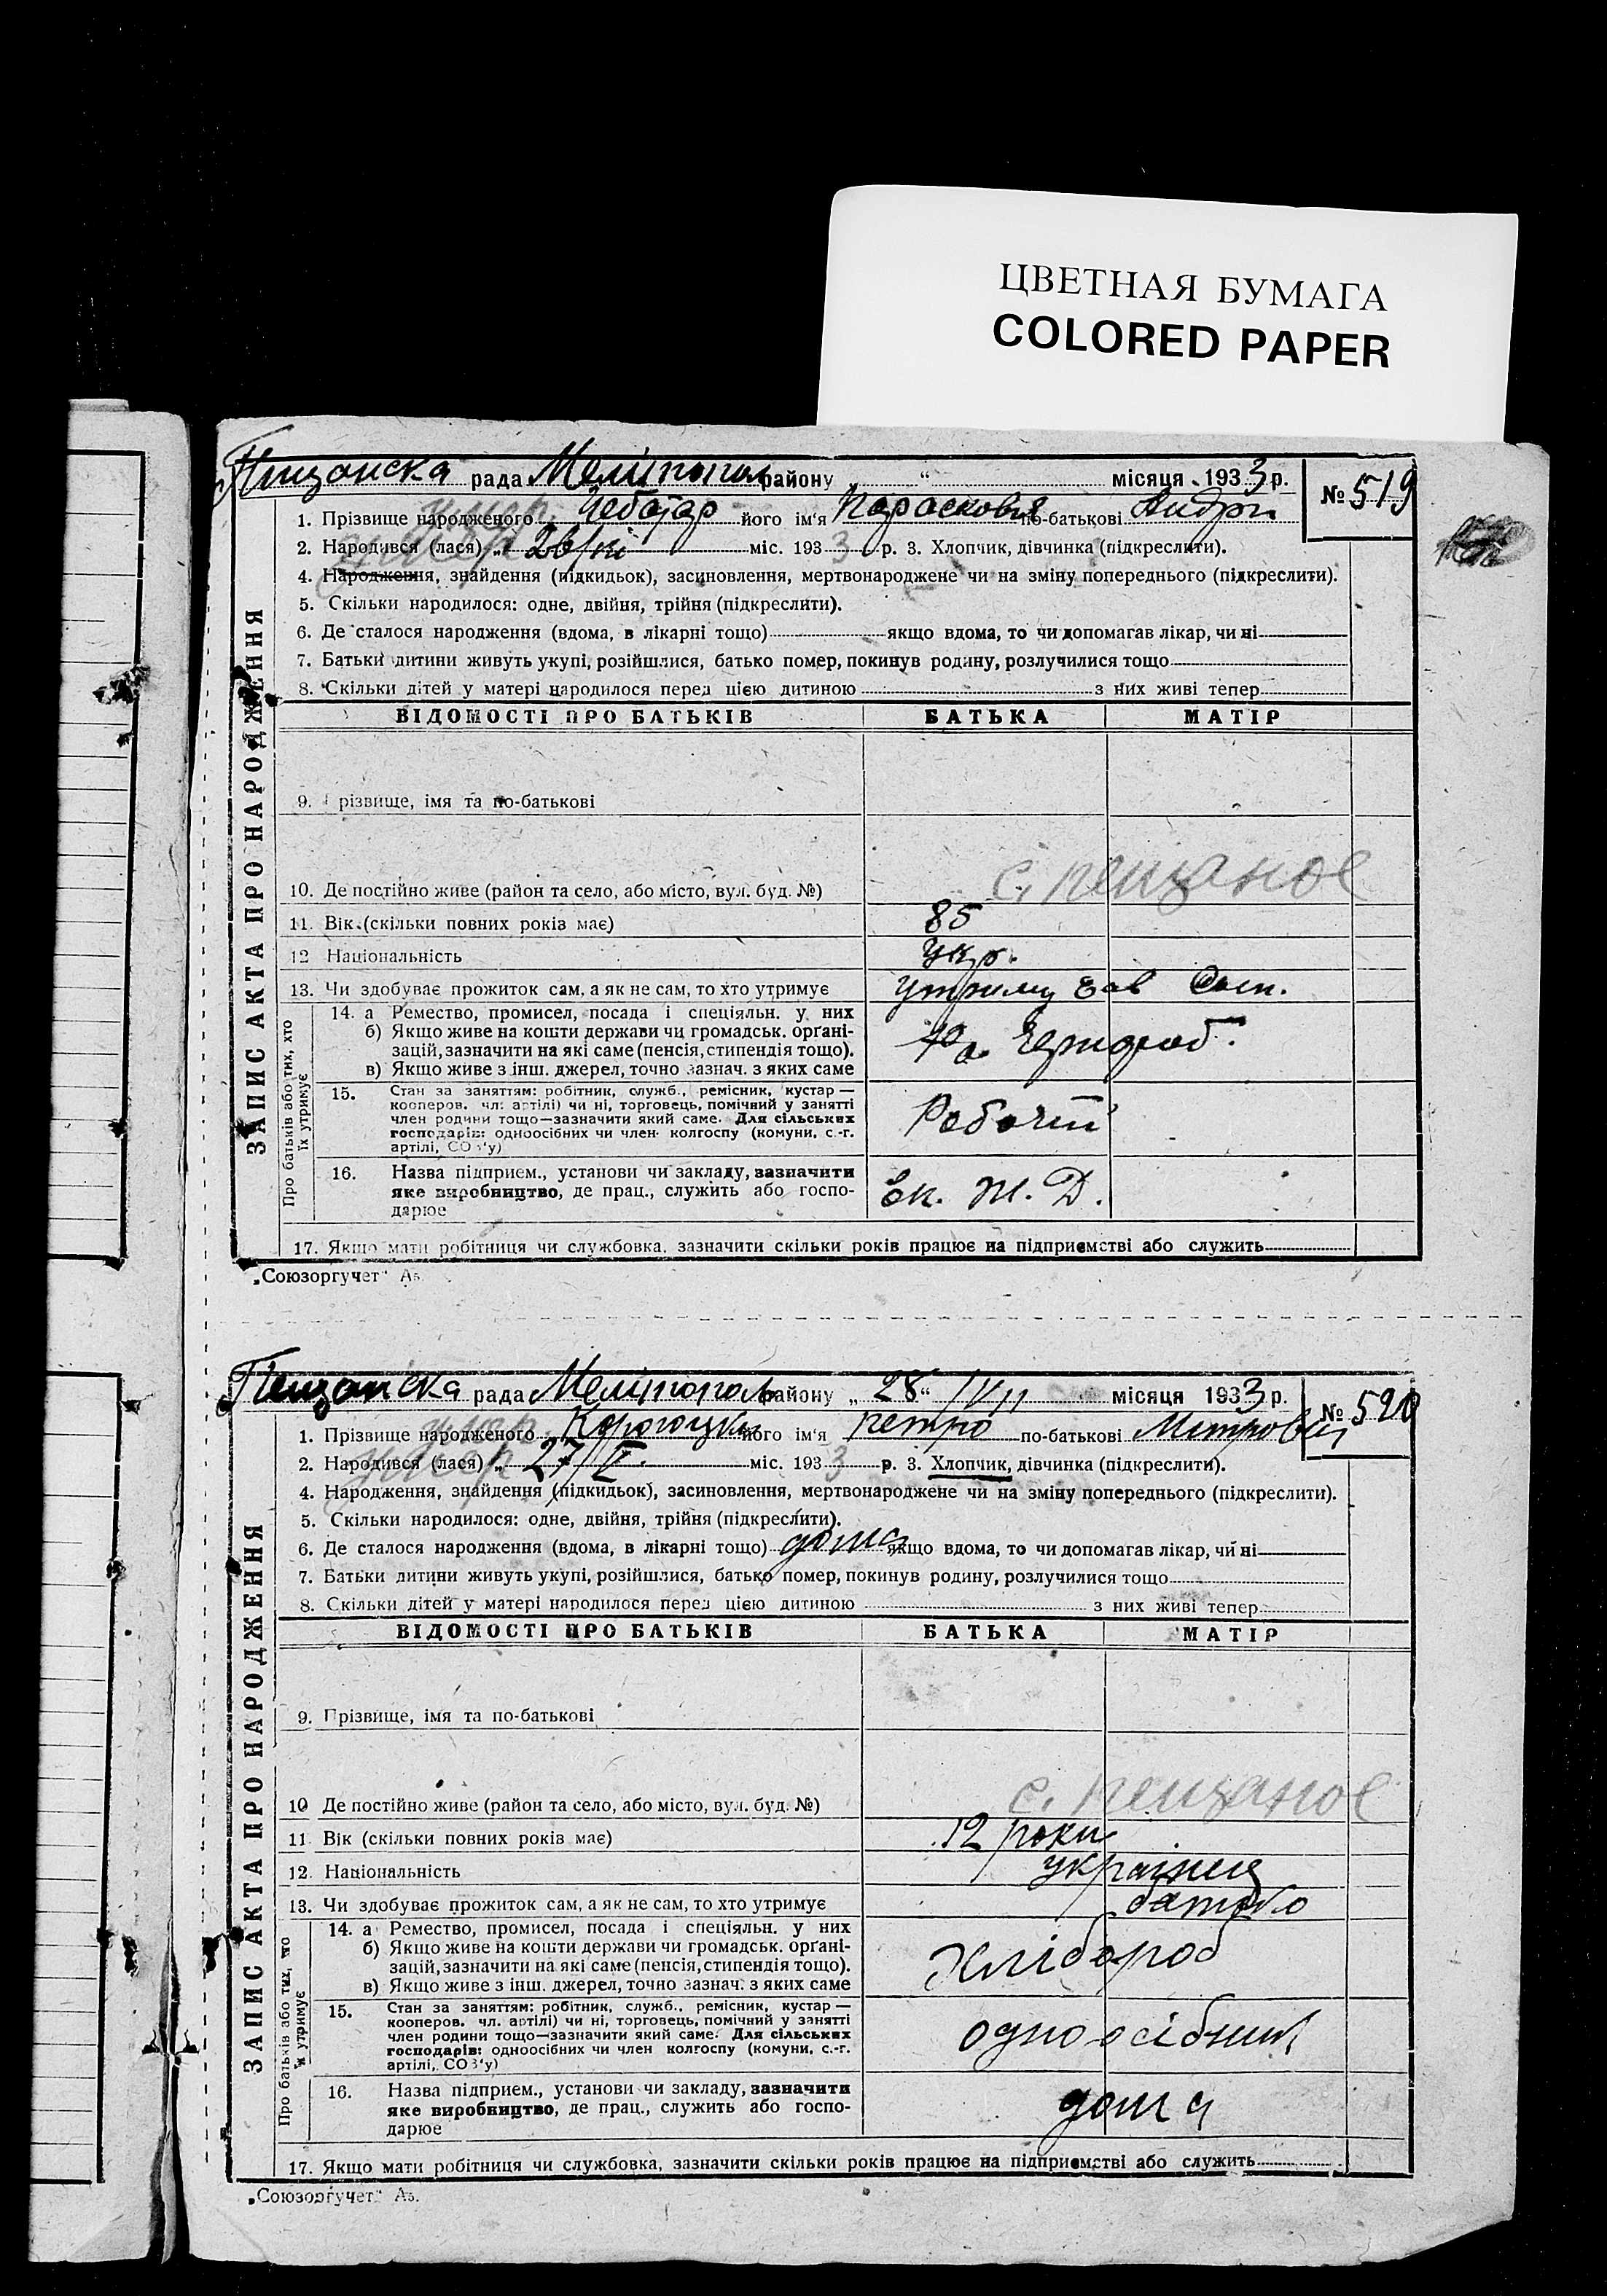 ЦВЕТНАЯ БУМАГА
COLORED PAPER
Пищанска рада Мелітопол району „ “ місяця 1933 р. № 519
умер
1. Прізвище народженого Чебатар його ім'я Парасковья по-батькові Андри
2. Народився (лася) „ 26/ міс. 1933 р. 3. Хлопчик, дівчинка (підкреслити).
4. Народження, знайдення (підкидьок), засиновлення, мертвонароджене чи на зміну попереднього (підкреслити).
5. Скільки народилося: одне, двійня, трійня (підкреслити).
6. Де сталося народження (вдома, в лікарні тощо) якщо вдома, то чи допомагав лікар, чи ні
7. Батьки дитини живуть укупі, розійшлися, батько помер, покинув родину, розлучилися тощо
8. Скільки дітей у матері народилося перед цією дитиною з них живі тепер
ВІДОМОСТІ ПРО БАТЬКІВ БАТЬКА МАТІР
9. Прізвище, імя та по-батькові
10. Де постійно живе (район та село, або місто, вул. буд. №) с. пещаное
11. Вік (скільки повних років має) 85
12 Національність Укр.
13. Чи здобуває прожиток сам, а як не сам, то хто утримує утриму
14. а Ремество, промисел, посада і спеціяльн. у них
б) Якщо живе на кошти держави чи громадськ. орґані-
зацій, зазначити на які саме (пенсія, стипендія тощо).
в) Якщо живе з інш. джерел, точно зазнач. з яких саме
15. Стан за заняттям: робітник, служб., ремісник, кустар —
кооперов. чл. артілі) чи ні, торговець, помічний у занятті
член родини тощо—зазначити який саме. Для сільських
господарів: одноосібних чи член колгоспу (комуни, с.-г.
артілі, СОЗ'у)
Робочий
16. Назва підприєм., установи чи закладу, зазначити
яке виробництво, де прац., служить або госпо-
дарює
Ек. Ж. Д.
17. Якщо мати робітниця чи службовка, зазначити скільки років працює на підприємстві або служить
Про батьків або тих, хто їх утримує
ЗАПИС АКТА ПРО НАРОДЖЕННЯ
„Союзоргучет“ Аз.
Пещанска рада Меліто­поль району „ 28 “ місяця 1933 р. № 520
умер
1. Прізвище народженого його ім'я Петро по-батькові Митрови
умер
2. Народився (лася) „ 27/ міс. 1933 р. 3. Хлопчик, дівчинка (підкреслити).
4. Народження, знайдення (підкидьок), засиновлення, мертвонароджене чи на зміну попереднього (підкреслити).
5. Скільки народилося: одне, двійня, трійня (підкреслити).
6. Де сталося народження (вдома, в лікарні тощо) дома якщо вдома, то чи допомагав лікар, чи ні
7. Батьки дитини живуть укупі, розійшлися, батько помер, покинув родину, розлучилися тощо
8. Скільки дітей у матері народилося перед цією дитиною з них живі тепер
ВІДОМОСТІ ПРО БАТЬКІВ БАТЬКА МАТІР
9. Прізвище, імя та по-батькові
10 Де постійно живе (район та село, або місто, вул. буд. №) с. пещаное
11. Вік (скільки повних років має) 12 роки
12. Національність україниц
13. Чи здобуває прожиток сам, а як не сам, то хто утримує батько
14. а Ремество, промисел, посада і спеціяльн. у них
б) Якщо живе на кошти держави чи громадськ. орґані-
зацій, зазначити на які саме (пенсія, стипендія тощо).
в) Якщо живе з інш. джерел, точно зазнач. з яких саме
Хлібороб
15. Стан за заняттям: робітник, служб., ремісник, кустар —
кооперов. чл. артілі) чи ні, торговець, помічний у занятті
член родини тощо—зазначити який саме. Для сільських
господарів: одноосібних чи член колгоспу (комуни, с.-г.
артілі, СОЗ'у)
одноосібник
16. Назва підприєм., установи чи закладу, зазначити
яке виробництво, де прац., служить або госпо-
дарює
дома
17. Якщо мати робітниця чи службовка, зазначити скільки років працює на підприємстві або служить
Про батьків або тих, хто їх утримує
ЗАПИС АКТА ПРО НАРОДЖЕННЯ
„Союзоргучет“ Аз.